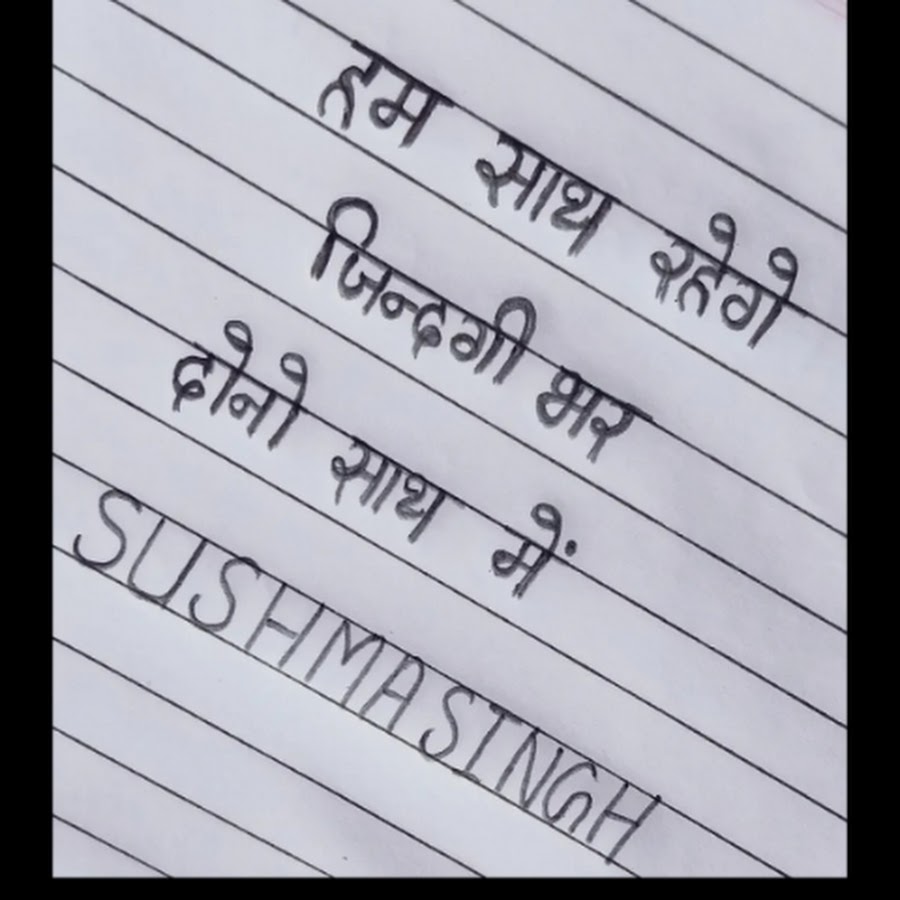 हम साथ रहेगे
जिन्दगी भर
दोनो साथ में
SUSHMA SINGH